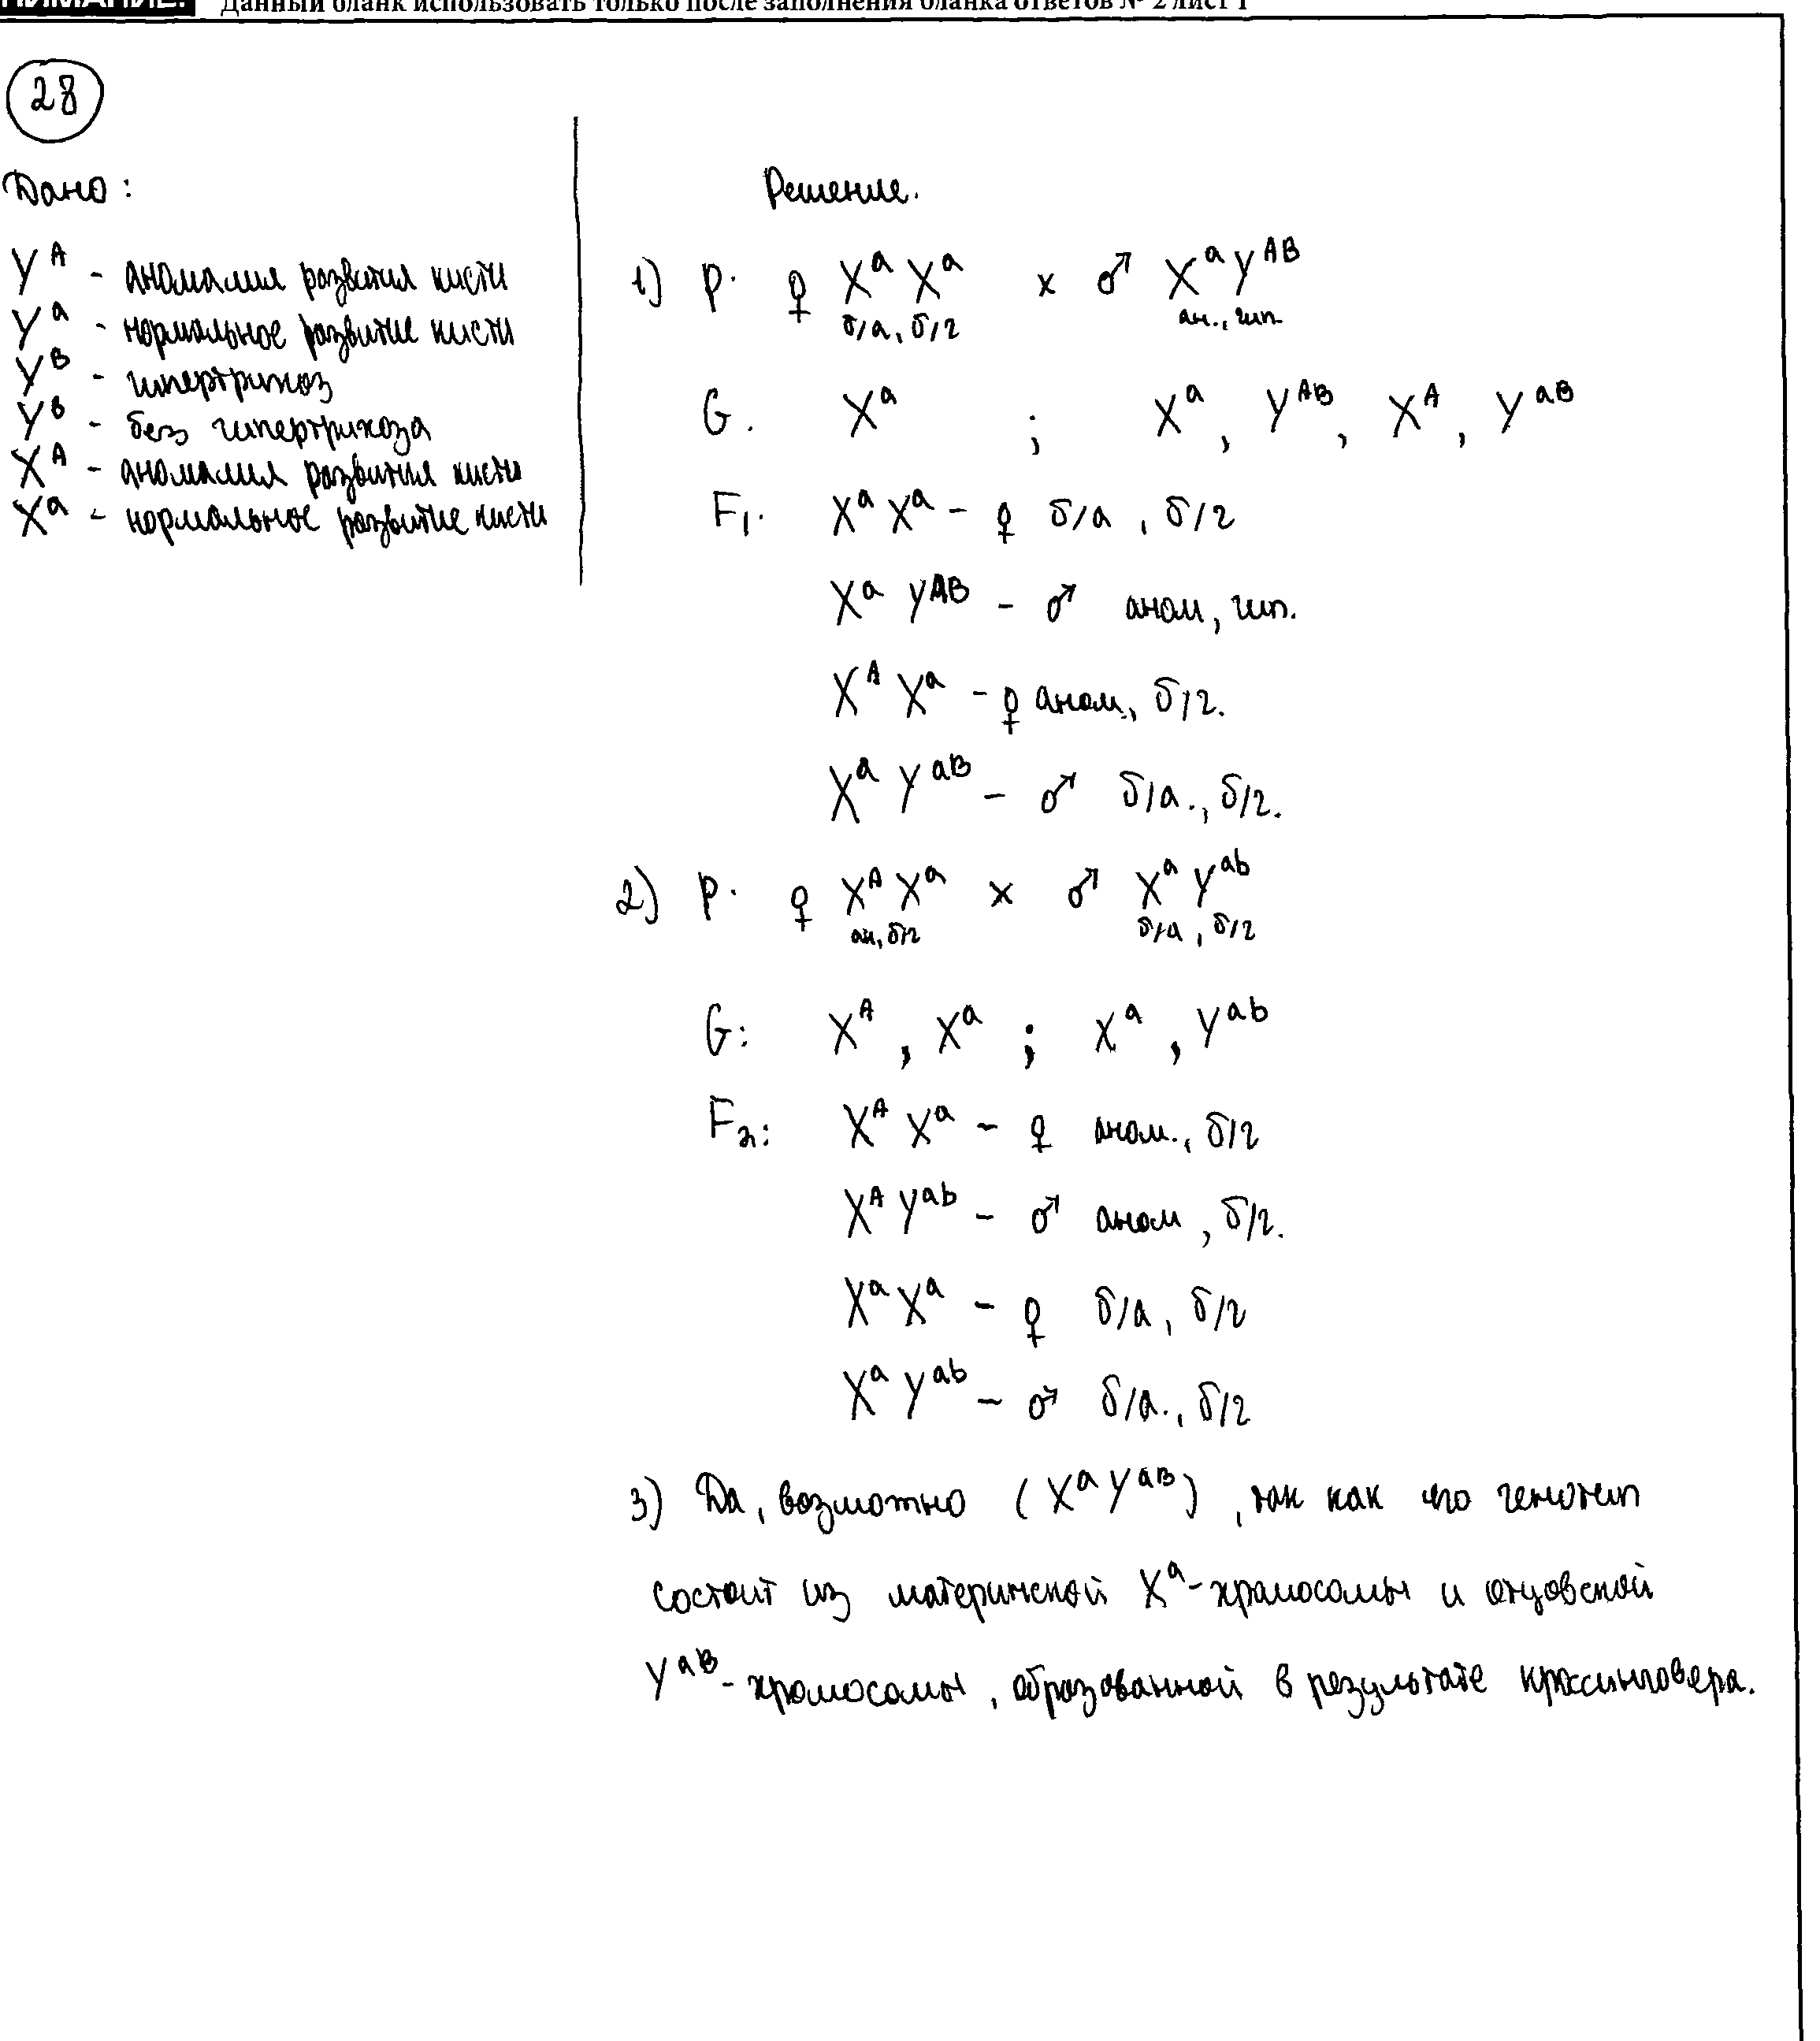 НИМАНИЕ! Данный бланк использовать только после заполнения бланка ответов № 2 лист 1
28
Дано:
Y^A - аномалия развития кисти
Y^a - нормальное развитие кисти
Y^B - гипертрихоз
Y^b - без гипертрихоза
X^A - аномалия развития кисти
X^a - нормальное развитие кисти
Решение.
1) P. ♀ X^a X^a x ♂ X^a Y^AB
б/а, б/г ан., гип.
G. X^a ; X^a, Y^AB, X^A, Y^aB
F1. X^a X^a - ♀ б/а, б/г
X^a Y^AB - ♂ аном, гип.
X^A X^a - ♀ аном., б/г.
X^a Y^aB - ♂ б/а., б/г.
2) P. ♀ X^A X^a x ♂ X^a Y^ab
ан, б/г б/а, б/г
G: X^A, X^a ; X^a, Y^ab
F2: X^A X^a - ♀ аном., б/г
X^A Y^ab - ♂ аном, б/г.
X^a X^a - ♀ б/а, б/г
X^a Y^ab - ♂ б/а., б/г
3) Да, возможно (X^a Y^aB), так как его генотип
состоит из материнской X^a-хромосомы и отцовской
Y^aB-хромосомы, образованной в результате кроссинговера.